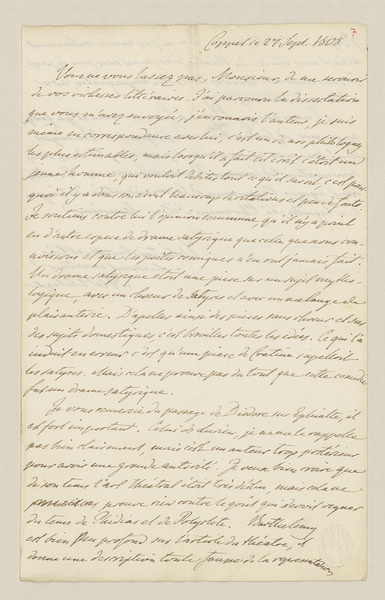 7
Coppet le 27 Sept. 1808
Vous ne vous lassez pas, Monsieur, de me
de vos richesses littéraires. J'ai parcouru la dissertation
que vous m'avez envoyée, j'en connois l'auteur, je suis
même en correspondance avec lui, c'est un de nos philologues
les plus estimables, mais lorsqu'il a fait cet écrit c'étoit un
jeune homme, qui vouloit débiter tout ce qu'il savoit, c'est pour-
quoi il y a dans son écrit beaucoup de citations et peu de faits.
Je soutiens contre lui l'opinion commune qu'il n'y a point
eu d'autre espece de drame satyrique que celle que nous con-
noissons et que les poètes comiques n'en ont jamais fait.
Un drame satyrique étoit une piece sur un sujet mytho-
logique, avec un choeur de Satyres et avec un mélange de
plaisanterie. D'appeler ainsi des pieces sans choeur et sur
des sujets domestiques, c'est brouiller toutes les idées. Ce qui l'a
induit en erreur c'est qu'une piece de Cratinus s'appelloit
les satyres. Mais cela ne prouve pas du tout que cette comédie
fut un drame satyrique.
Je vous remercie du passage de Diodore sur Ephialte, il
est fort important. Celui de Lucien, je ne me le rappelle
pas bien clairement, mais c'est un auteur trop postérieur
pour avoir une grande autorité. Je veux bien croire que
de son tems l'art théâtral étoit très déchu, mais cela ne
prouve rien contre le goût qui devoit regner
du tems de Phidias et de Polyclete. Barthelemy
est bien peu profond sur l'article du théâtre, il
donne une description toute fausse de la representation